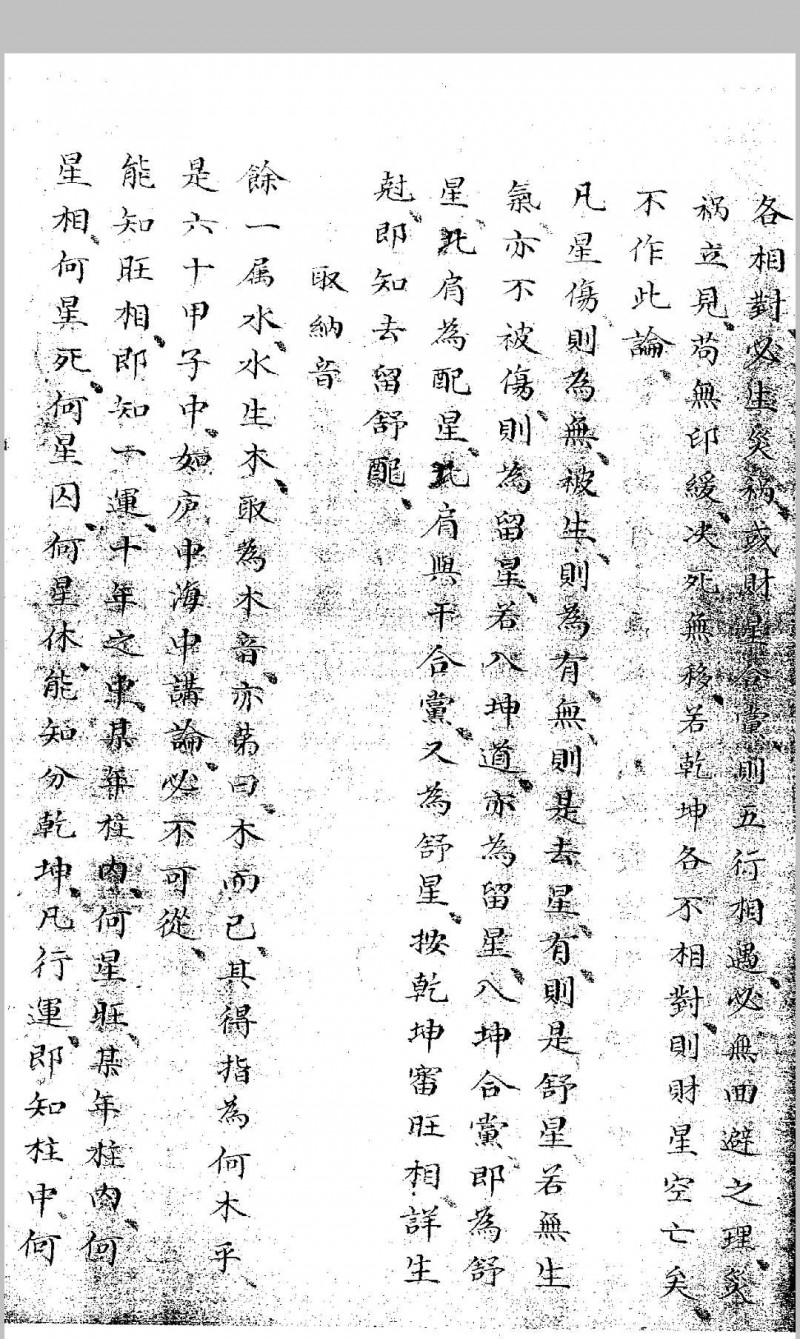 各相對、必生災禍、或財星合黨、則五行相遇、必無回避之理、災
禍立見、苟無印緩、决死無移、若乾坤各不相對、則財星空亡矣、
不作此論、
凡星傷則為無、被生、則為有、無、則是去星、有、則是舒星若無生
氣、亦不被傷、則為留星、若入坤道、亦為留星、入坤合黨、即為舒
星、比肩為配星、比肩與干合黨、又為舒星、按乾坤審旺相、詳生
尅、即知去留舒配、
取納音
餘一属水、水生木、取為木音、亦第曰、木而已、其得指為何木乎、
是六十甲子中、如庐中海中講論、必不可從、
能知旺相、即知一運、十年之事、某年柱内、何星旺、某年柱内、何
星相、何星死、何星囚、何星休、能知分乾坤、凡行運、即知柱中、何